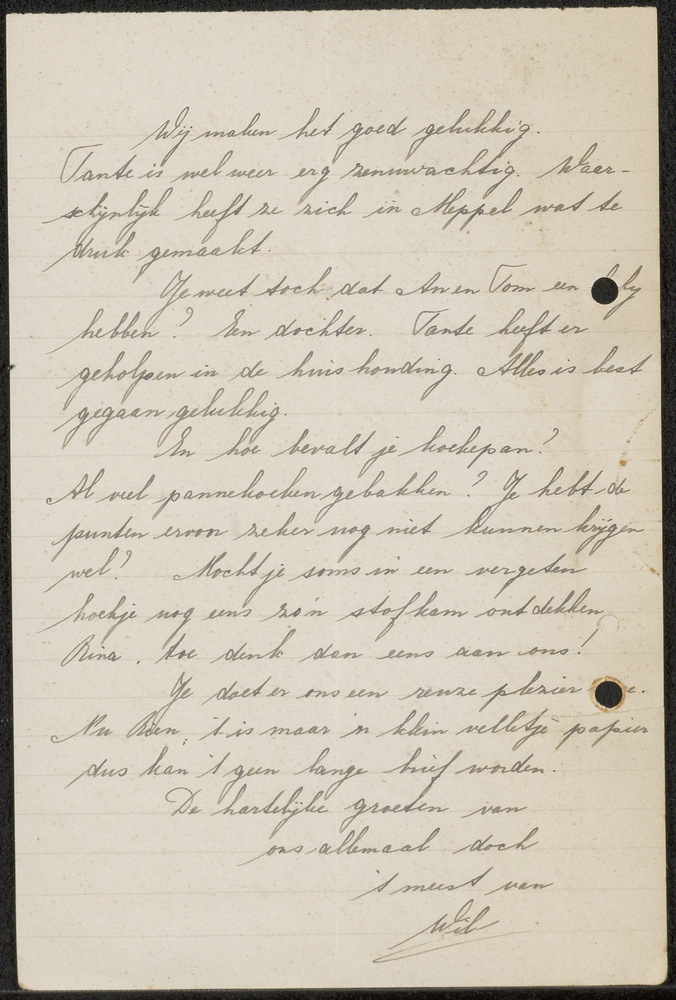 Wij maken het goed gelukkig.
Tante is wel weer erg zenuwachtig. Waar-
schijnlijk heeft ze zich in Meppel wat te
druk gemaakt.
Je weet toch dat An en Tom een by
hebben? Een dochter. Tante heeft er
geholpen in de huishouding. Alles is best
gegaan gelukkig.
En hoe bevalt je koekepan?
Al veel pannekoeken gebakken? Je hebt de
punten ervoor zeker nog niet kunnen krijgen
wel? Mocht je soms in een vergeten
hoekje nog eens zo'n stofkam ontdekken
Rina, toe denk dan eens aan ons!
Je doet er ons een reuze plezier e.
Nu Rien, 't is maar 'n klein velletje papier
dus kan 't geen lange brief worden.
De hartelijke groeten van
ons allemaal doch
't meest van
Wil